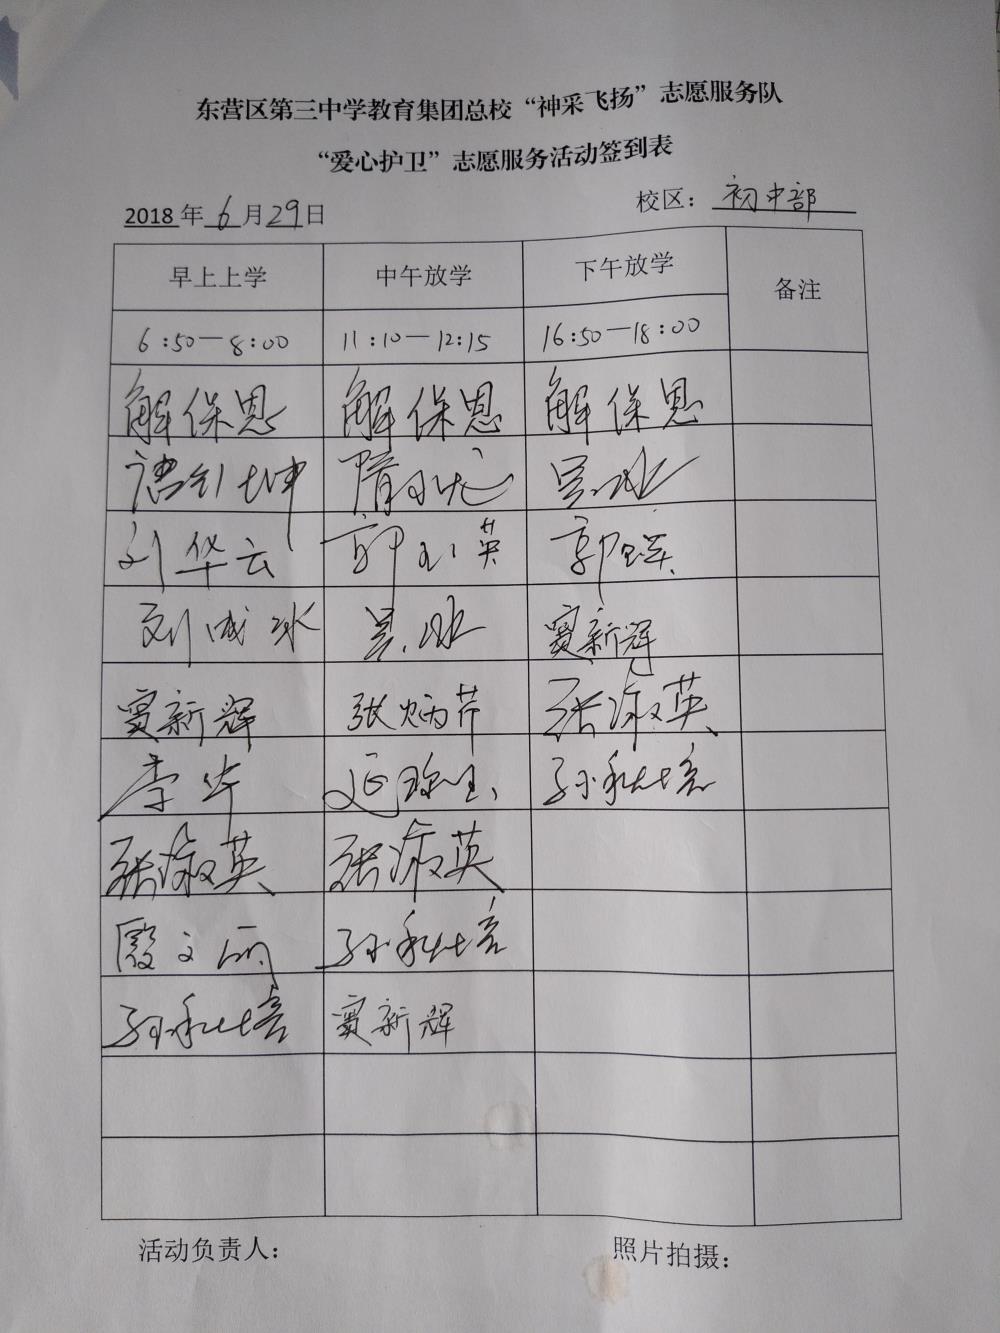 东营区第三中学教育集团总校“神采飞扬”志愿服务队
“爱心护卫”志愿服务活动签到表
2018 年 6 月 29 日 校区： 初中部
早上上学 中午放学 下午放学 备注
6:50—8:00 11:10—12:15 16:50—18:00
解保恩 解保恩 解保恩
刘华云 郭玉英 郭玉英
刘成冰 吴冰
窦新辉 张炳芹 张淑英
李华 孙秋培
张淑英 张淑英
殷文丽 孙秋培
孙秋培 窦新辉
活动负责人： 照片拍摄：